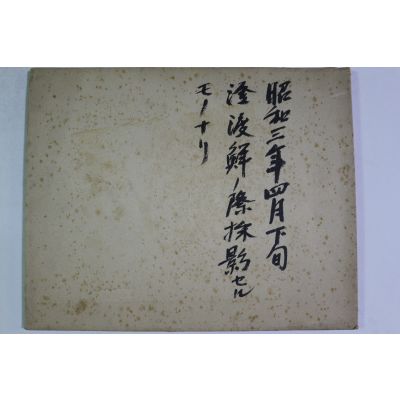 昭和三年四月下旬
渡鮮ノ際採影セル
モノナリ